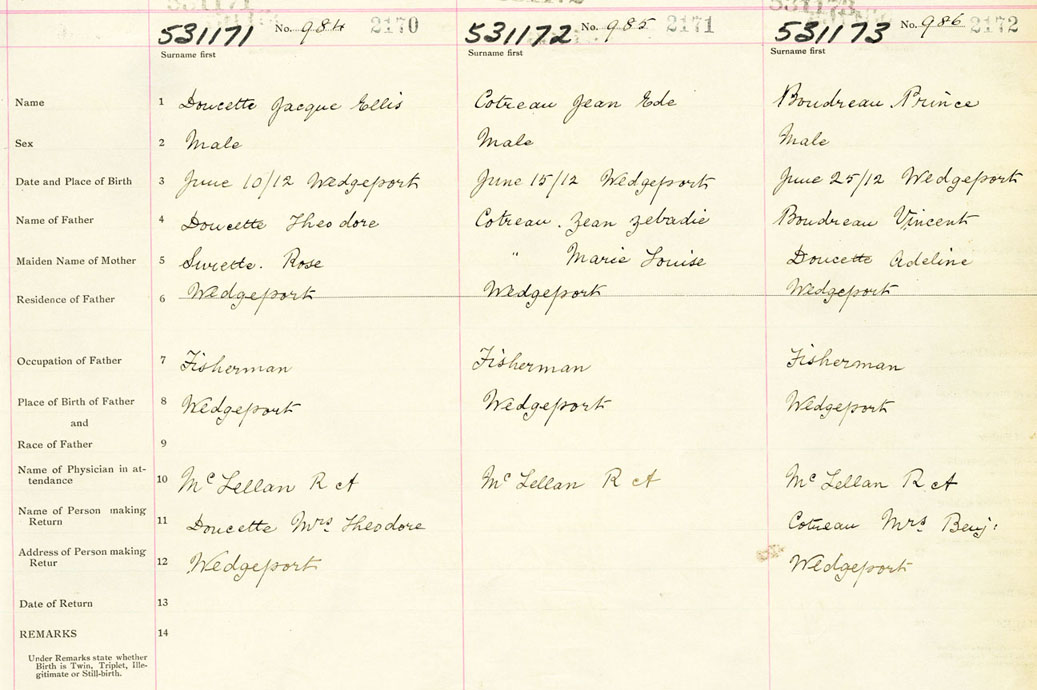 531171 No. 984 2170 531172 No. 985 2171 531173 No. 986 2172
Surname first Surname first Surname first
Name 1 Doucette Jacque Ellis Cotreau Jean Ede Boudreau Prince
Sex 2 Male Male Male
Date and Place of Birth 3 June 10/12 Wedgeport June 15/12 Wedgeport June 25/12 Wedgeport
Name of Father 4 Doucette Theodore Cotreau. Jean Zebadie Boudreau Vincent
Maiden Name of Mother 5 Surette. Rose " Marie Louise Doucette Adeline
Residence of Father 6 Wedgeport Wedgeport Wedgeport
Occupation of Father 7 Fisherman Fisherman Fisherman
Place of Birth of Father 8 Wedgeport Wedgeport Wedgeport
and
Race of Father 9
Name of Physician in at-
tendance 10 McLellan R A McLellan R A McLellan R A
Name of Person making
Return 11 Doucette Mrs Theodore Cotreau Mrs Benj.
Address of Person making
Retur 12 Wedgeport Wedgeport
Date of Return 13
REMARKS 14
Under Remarks state whether
Birth is Twin, Triplet, Ille-
gitimate or Still-birth.